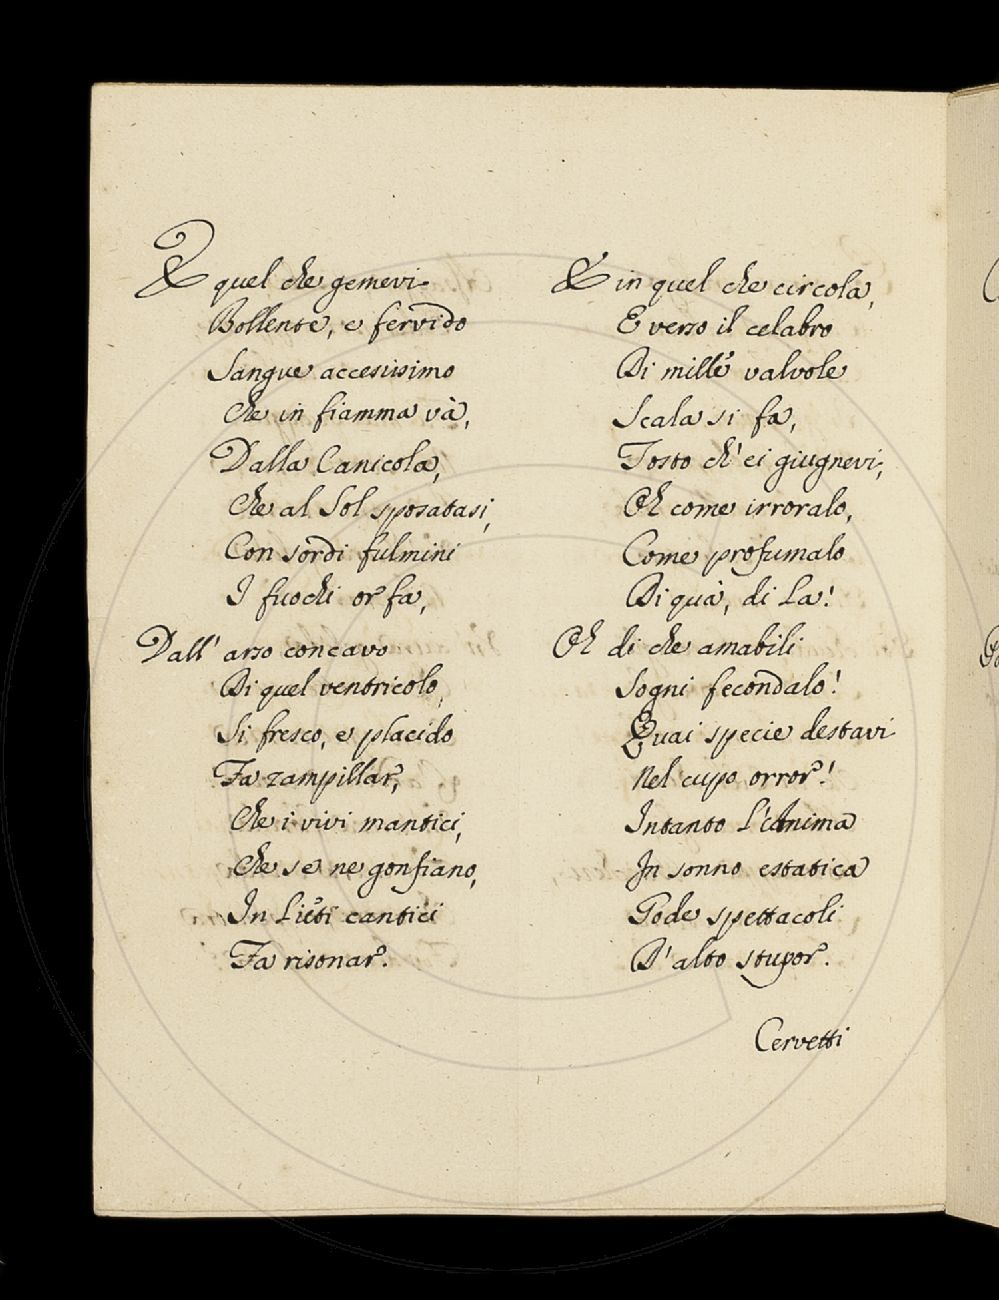 E quel che gemevi
Bollente, e fervido
Sangue accesissimo
Che in fiamma và,
Dalla Canicola,
Che al Sol sposatasi,
Con sordi fulmini
I fuochi or fa,
Dall' arso concavo
Di quel ventricolo,
Si fresco, e placido
Fa zampillar,
Che i vivi mantici,
Che se ne gonfiano,
In Lieti cantici
Fa risonar.
E in quel che circola,
E verso il celabro
Di mille valvole
Scala si fa,
Tosto ch' ei giugnevi,
Oh come irroralo,
Come profumalo
Di quà, di La!
Oh di che amabili
Sogni fecondalo!
Quai specie destavi
Nel cupo orror!
Intanto L'Anima
In sonno estatica
Gode spettacoli
D' alto stupor.
Cervetti